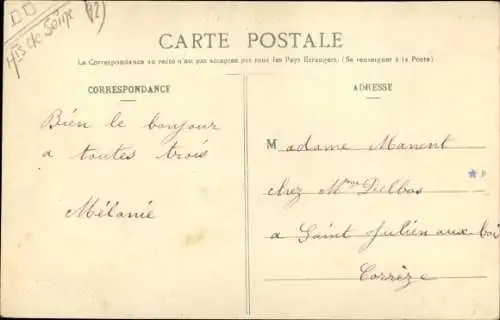 DD
Hts de Seine
92
CARTE POSTALE
La Correspondance au recto n'est pas acceptée par tous les Pays Etrangers. (Se renseigner à la Poste)
CORRESPONDANCE
Bien le bonjour
a toutes trois
Mélanie
ADRESSE
Madame Manent
chez Mme Delbos
a Saint Julien aux boi
Corrèze